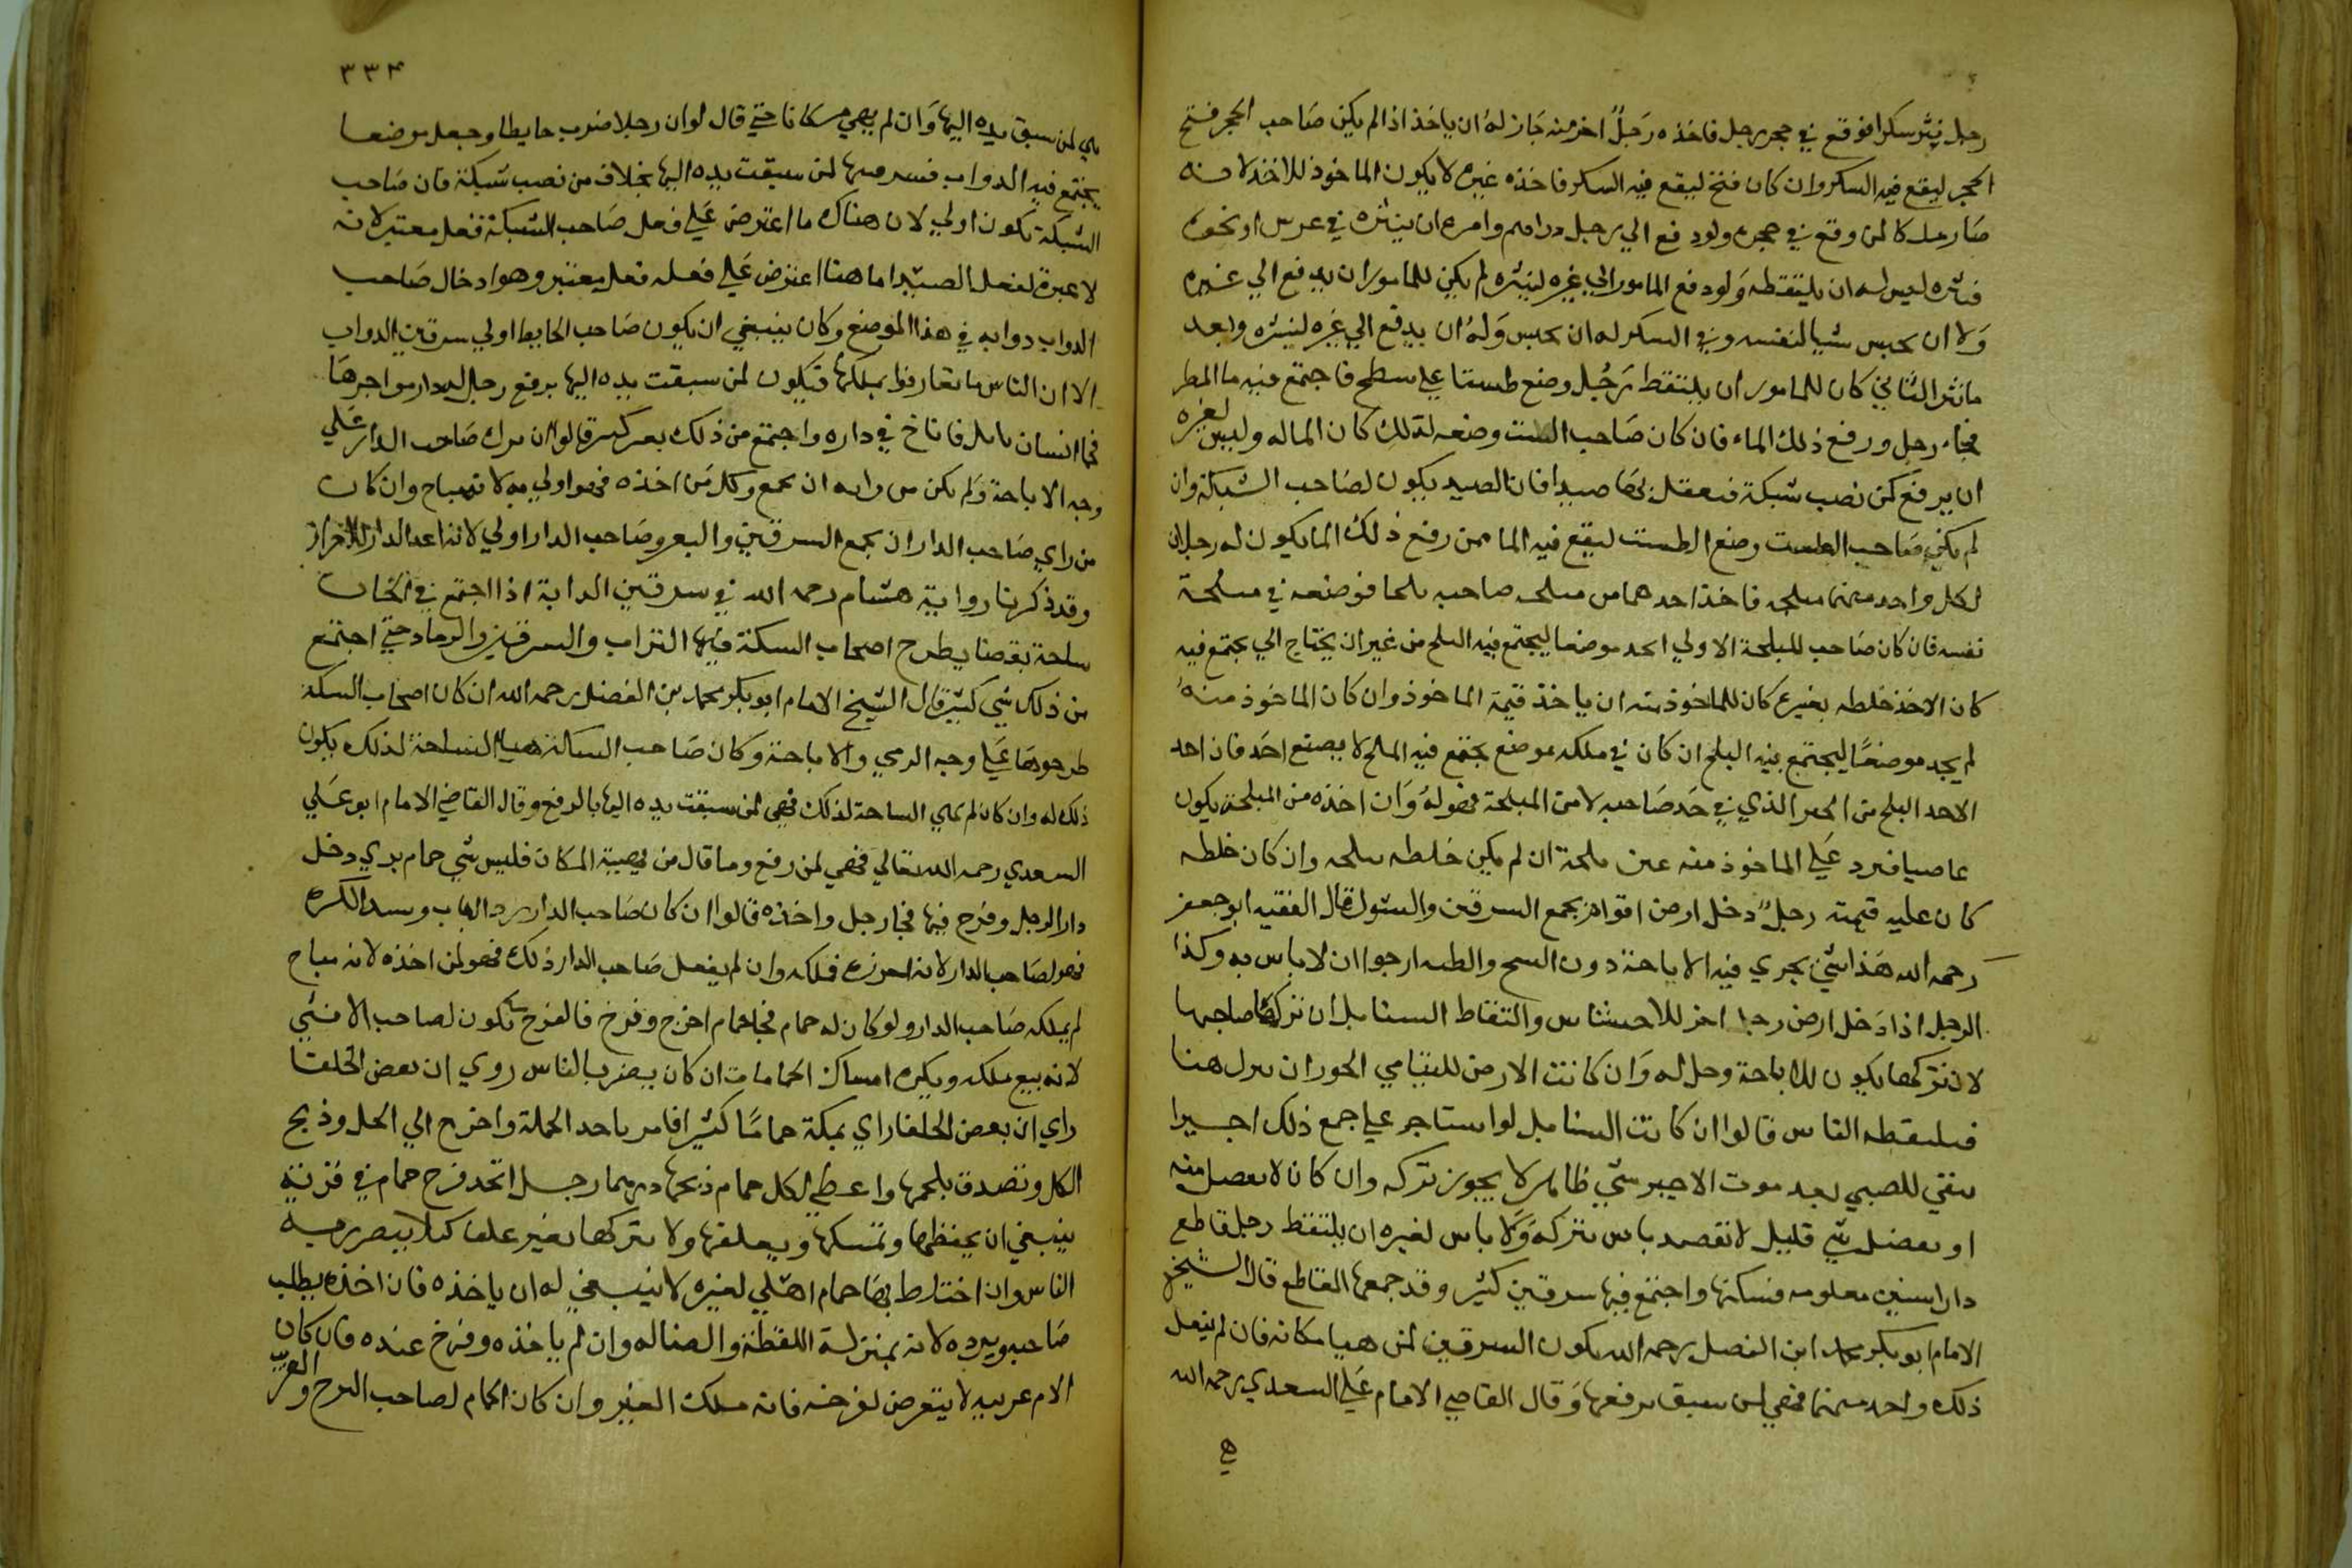 رجل نثر سكرا فوقع في حجر رجل فاخذه رَجلٌ اخر منه جَاز لهُ ان ياخذ اذا لم يكن صَاحب الحجر فتح
الحجر ليقع فيه السكر وان كان فتح ليقع فيه السكر فاخذه غيره لا يكون الماخوذ للاخذ لانه
صَار ملكا لمن وقع في حجره ولو دفع الي رجل دراهم وامره ان ينثره في عرس او نحوه
فنثره ليس له ان يلتقطه وَلو دفع المامور الي غيره لينثره لم يكن للمامور ان يدفع الي غيره
وَلا ان يحبس شيا لنفسه وفي السكر له ان يحبس وَلهُ ان يدفع الي غيره لينثره وبعد
ما نثر الثاني كان للمامور ان يلتقط رَجُل وضع طستا علي سطح فاجتمع فيه ما المطر
فجاء رجل ورفع ذلك الماء فان كان صَاحب الست وضعه لذلك كان الما له وليس لغيره
ان يرفع كمن نصب شبكة فتعقل بهَا صيدا فان الصيد يكون لصَاحب الشبكة وان
لم يكن صَاحب الطست وضع الطست ليقع فيه الما فمن رفع ذلك الما يكون له رجلان
لكل واحد منهما مملحه فاخذ احدهما من مملحه صاحبه ملحا فوضعه في مملحة
نفسه فان كان صَاحب المملحة الاولي اتخذ موضعا ليجتمع فيه الملح من غير ان يحتاج الي يجتمع فيه
كان الاخذ خلطه بغيره كان للماخوذ منه ان ياخذ قيمة الماخوذ وان كان الماخوذ منهُ
لم يجد موضعًا ليجتمع فيه الملح ان كان في ملكه موضع يجتمع فيه الملح لا بصنع احَد فان احد
الاحد الملح من الذي في حَد صَاحبه لا من المملحة فهو لهُ وَان اخذه من المملحة يكون
عاصيا فيرد عَلي الماخوذ منه عين ملحه ان لم يكن خلطه بملحه وان كان خلطه
كان عليه قيمته رجلٌ دخل ارض اقوام يجمع السرقين والشوك قال الفقيه ابو جعفر
رَحمه الله هَذا شي يجري فيه الاباحة دون الشح والطلب ارجوا ان لا باس به وكذا
الرجل اذا دَخل ارض رجل اخر للاحتشاش والتقاط السنابل ان تركها صاحبها
لان تركها يكون للاباحة وحل له وَان كانت الارض لليتامي ان هنا
فيلتقطه الناس قالوا ان كانت السنابل لو استاجر علي جمع ذلك اجيرا
يبقي للصبي بعد موت الاجير شي ظاهر لا يجوز تركه وان كان لا يفضل منه
او يفضل شي قليل لا يقصد باس بتركه وَلا باس لغيره ان يلتقط رجل قاطع
دارا سنين معلومه فسكنها واجتمع فيها سرقين كثير وقد جمعها القاطع قال الشيخ
الامام ابو بكر محمد ابن الفضل رحمه الله يكون السرقين لمن هيا مكانه فان لم يفعل
ذلك واحد منهما فهي لمن سبق برفعها وَقال القاضي الامام عَلي السعدي رحمه الله
هي
٣٣٤
هي لمن سبق يده اليها وَان لم يهي مكانا حتي قال لو ان رجلا ضرب حايطا وجعل موضعا
يجتمع فيه الدواب فسرقينها لمن سبقت يده اليها بخلاف من نصب شبكة فان صَاحب
الشبكة يكون اولي لان هناك ما اعترض عَلي فعل صَاحب الشبكة فعل معتبر لانه
لا عبرة لفعل الصيد اما هنا اعترض عَلي فعله فعل معتبر وهو ادخال صَاحب
الدواب دوابه في هذا الموضع وكان ينبغي ان يكون صَاحب الحايط اولي بسرقين الدواب
الا ان الناس ما تعارفوا تملكها فتكون لمن سبقت يده اليها برفع رجل له دار مواجرهَا
فجا انسان بابل فاناخ في داره واجتمع من ذلك بعر كثير قالوا ان ترك صَاحب الدار عَلي
وجه الاباحة وَلم يكن من رايه ان يجمع وكل من اخذه فهو اولي به لانه مباح وان كان
من راي صَاحب الدار ان يجمع السرقين والبعر وصَاحب الدار اولي لانه اعد الدار للاحراز
وقد ذكرنا رواية هشام رحمه الله في سرقين الدابة اذا اجتمع في الخان
ساحة بقربها يطرح اصحاب السكة فيها التراب والسرقين والرماد حتي اجتمع
من ذلك شي كثير قال الشيخ الامام ابو بكر محمد بن الفضل رحمه الله ان كان اصحاب السكة
طرحوهَا عَلي وجه الرمي والاباحة وكان صَاحب الساحة هيا الساحة لذلك يكون
ذلك له وان كان لم يهي الساحة لذلك فهي لمن سبقت يده اليها بالرفع وقال القاضي الامام ابو عَلي
السعدي رحمه الله تعالي فهي لمن رفع وما قال من تهيية المكان فليس شي حمام بري دخل
دار الرجل وفرخ فيها فجا رجل واخذه قالوا ان كان صَاحب الدار رد الباب وسد الكوه
فهو لصَاحب الدار لانه احرزه فملكه وان لم يفعل صَاحب الدار ذلك فهو لمن اخذه لانه مباح
لم يملكه صَاحب الدار ولو كان له حمام فجا حمام اخر وفرخ فالفرخ يكون لصاحب الانثي
لانه بيع ملكه ويكره امساك الحمامات ان كان يضر بالناس روي ان بعض الخلفا
راي ان بعض الخلفا راي بمكة حمامًا كثيرا فامر باخذ الجملة واخرج الي الحل وذبح
الكل وتصدق بلحمها واعطي لكل حمام ذبحها درهما رجل اتخذ فرخ حمام في قرية
ينبغي ان يحفظها ويمسكها ويعلفها ولا يتركها بغير علف كيلا يتضرر به
الناس وان اختلط بهَا حمام اهلي لغيره لا ينبغي له ان ياخذه فان اخذه يطلب
صَاحبه ويرده لانه بمنزلة اللقطة والضاله وان لم ياخذه وفرخ عنده فان كان
الام غريبه لا يتعرض لفرخه فانه ملك الغير وان كان الحمام لصاحب البرج والغريب